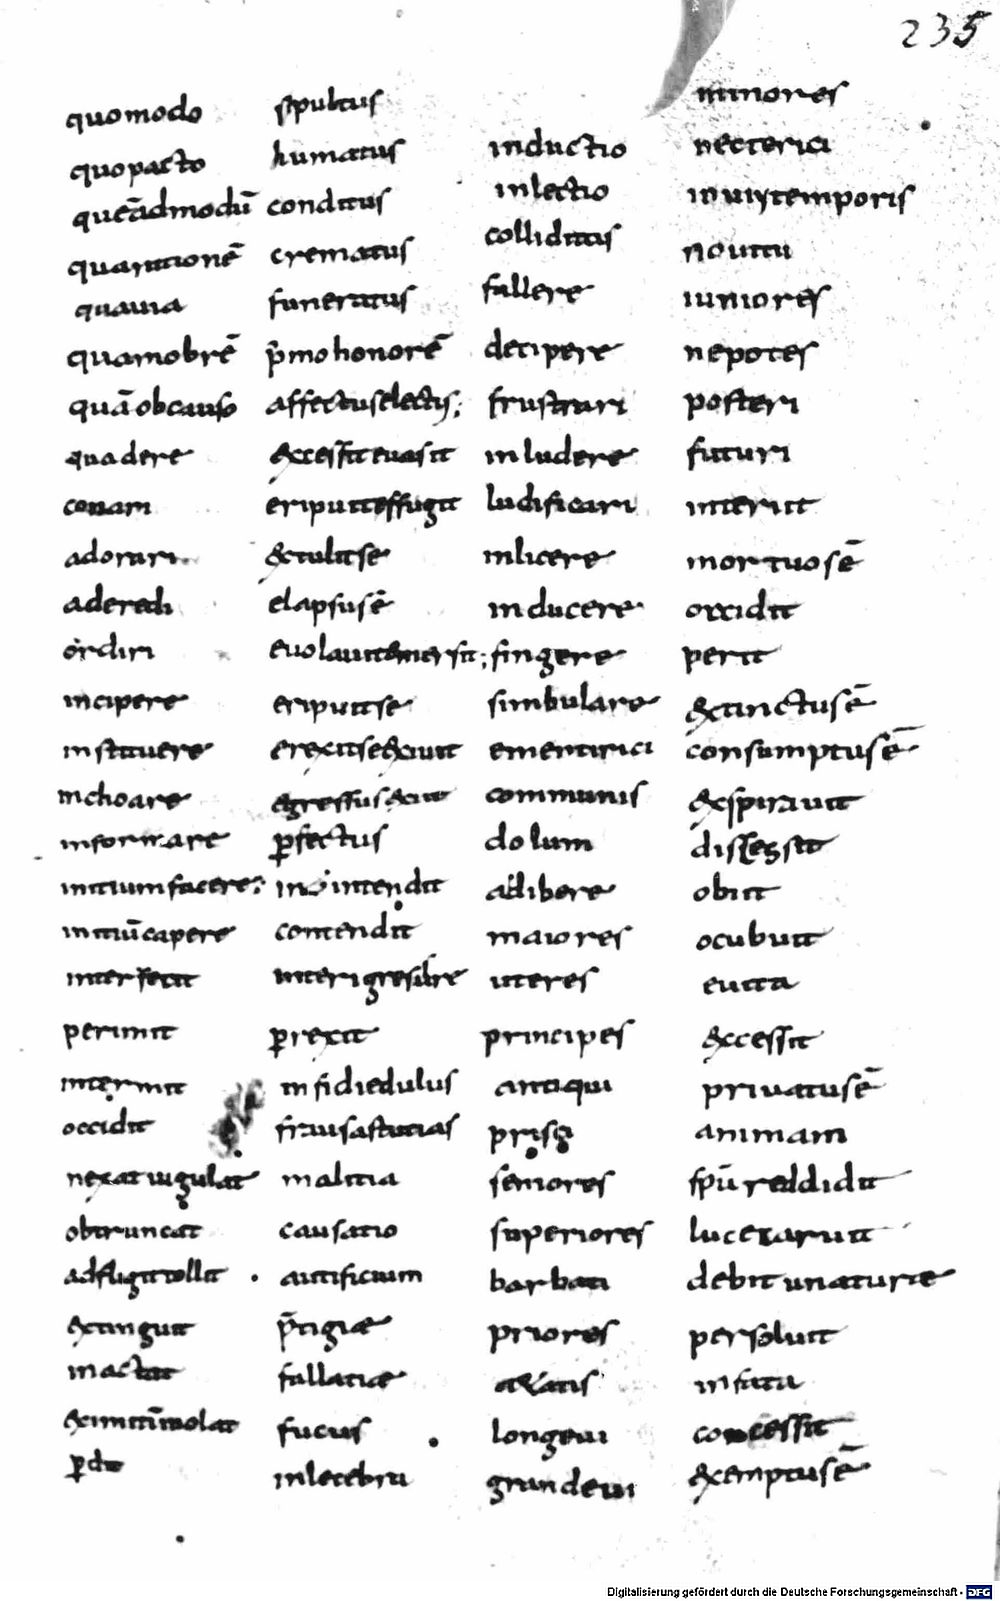 235
quomodo
quopacto
queādmodū
quarationē
quauia
quamobrē
quāobcausā
quadere
conam
adorari
aderedi
ordiri
incipere
instituere
inchoare
informare
initiumfacere;
initiūcapere
interfecit
perimit
interimit
occidit
necat iugulat
obtruncat
adfligit tollit
extinguit
mactat
eximit īmolat
ꝑdit
sepultus
humatus
conditus
crematus
funeratus
p̄mo honorē
affectus electis;
excessit euasit
eripuit effugit
extulit se
elapsus ē
euolauit emersit;
eripuit se
erexit se exiuit
egressus exiit
ꝑfectus
intendit
contendit
ꝑrexit
infidie dulus
fraus astutias
malitia
causatio
artificium
p̄tigiæ
fallatiæ
fucus
inlecebra
inductio
inlectio
colliditis
fallere
decipere
frustrari
inludere
ludificari
inlicere
inducere
fingere
simbulare
ementirici
communis
dolum
adibere
maiores
ueteres
principes
antiqui
prisci
seniores
superiores
barbati
priores
ætatis
longeui
grandeui
minores
necterici
inuiystemporis
nouitii
iuniores
nepotes
posteri
futuri
interiit
mortuos ē
occidit
periit
extinctus ē
consumptus ē
expirauit
discessit
obiit
ocubuit
euita
excessit
priuatus ē
animam
spū reddidit
luce caruit
debitu naturæ
persoluit
infata
concessit
exemptus ē
Digitalisierung gefördert durch die Deutsche Forschungsgemeinschaft - DFG